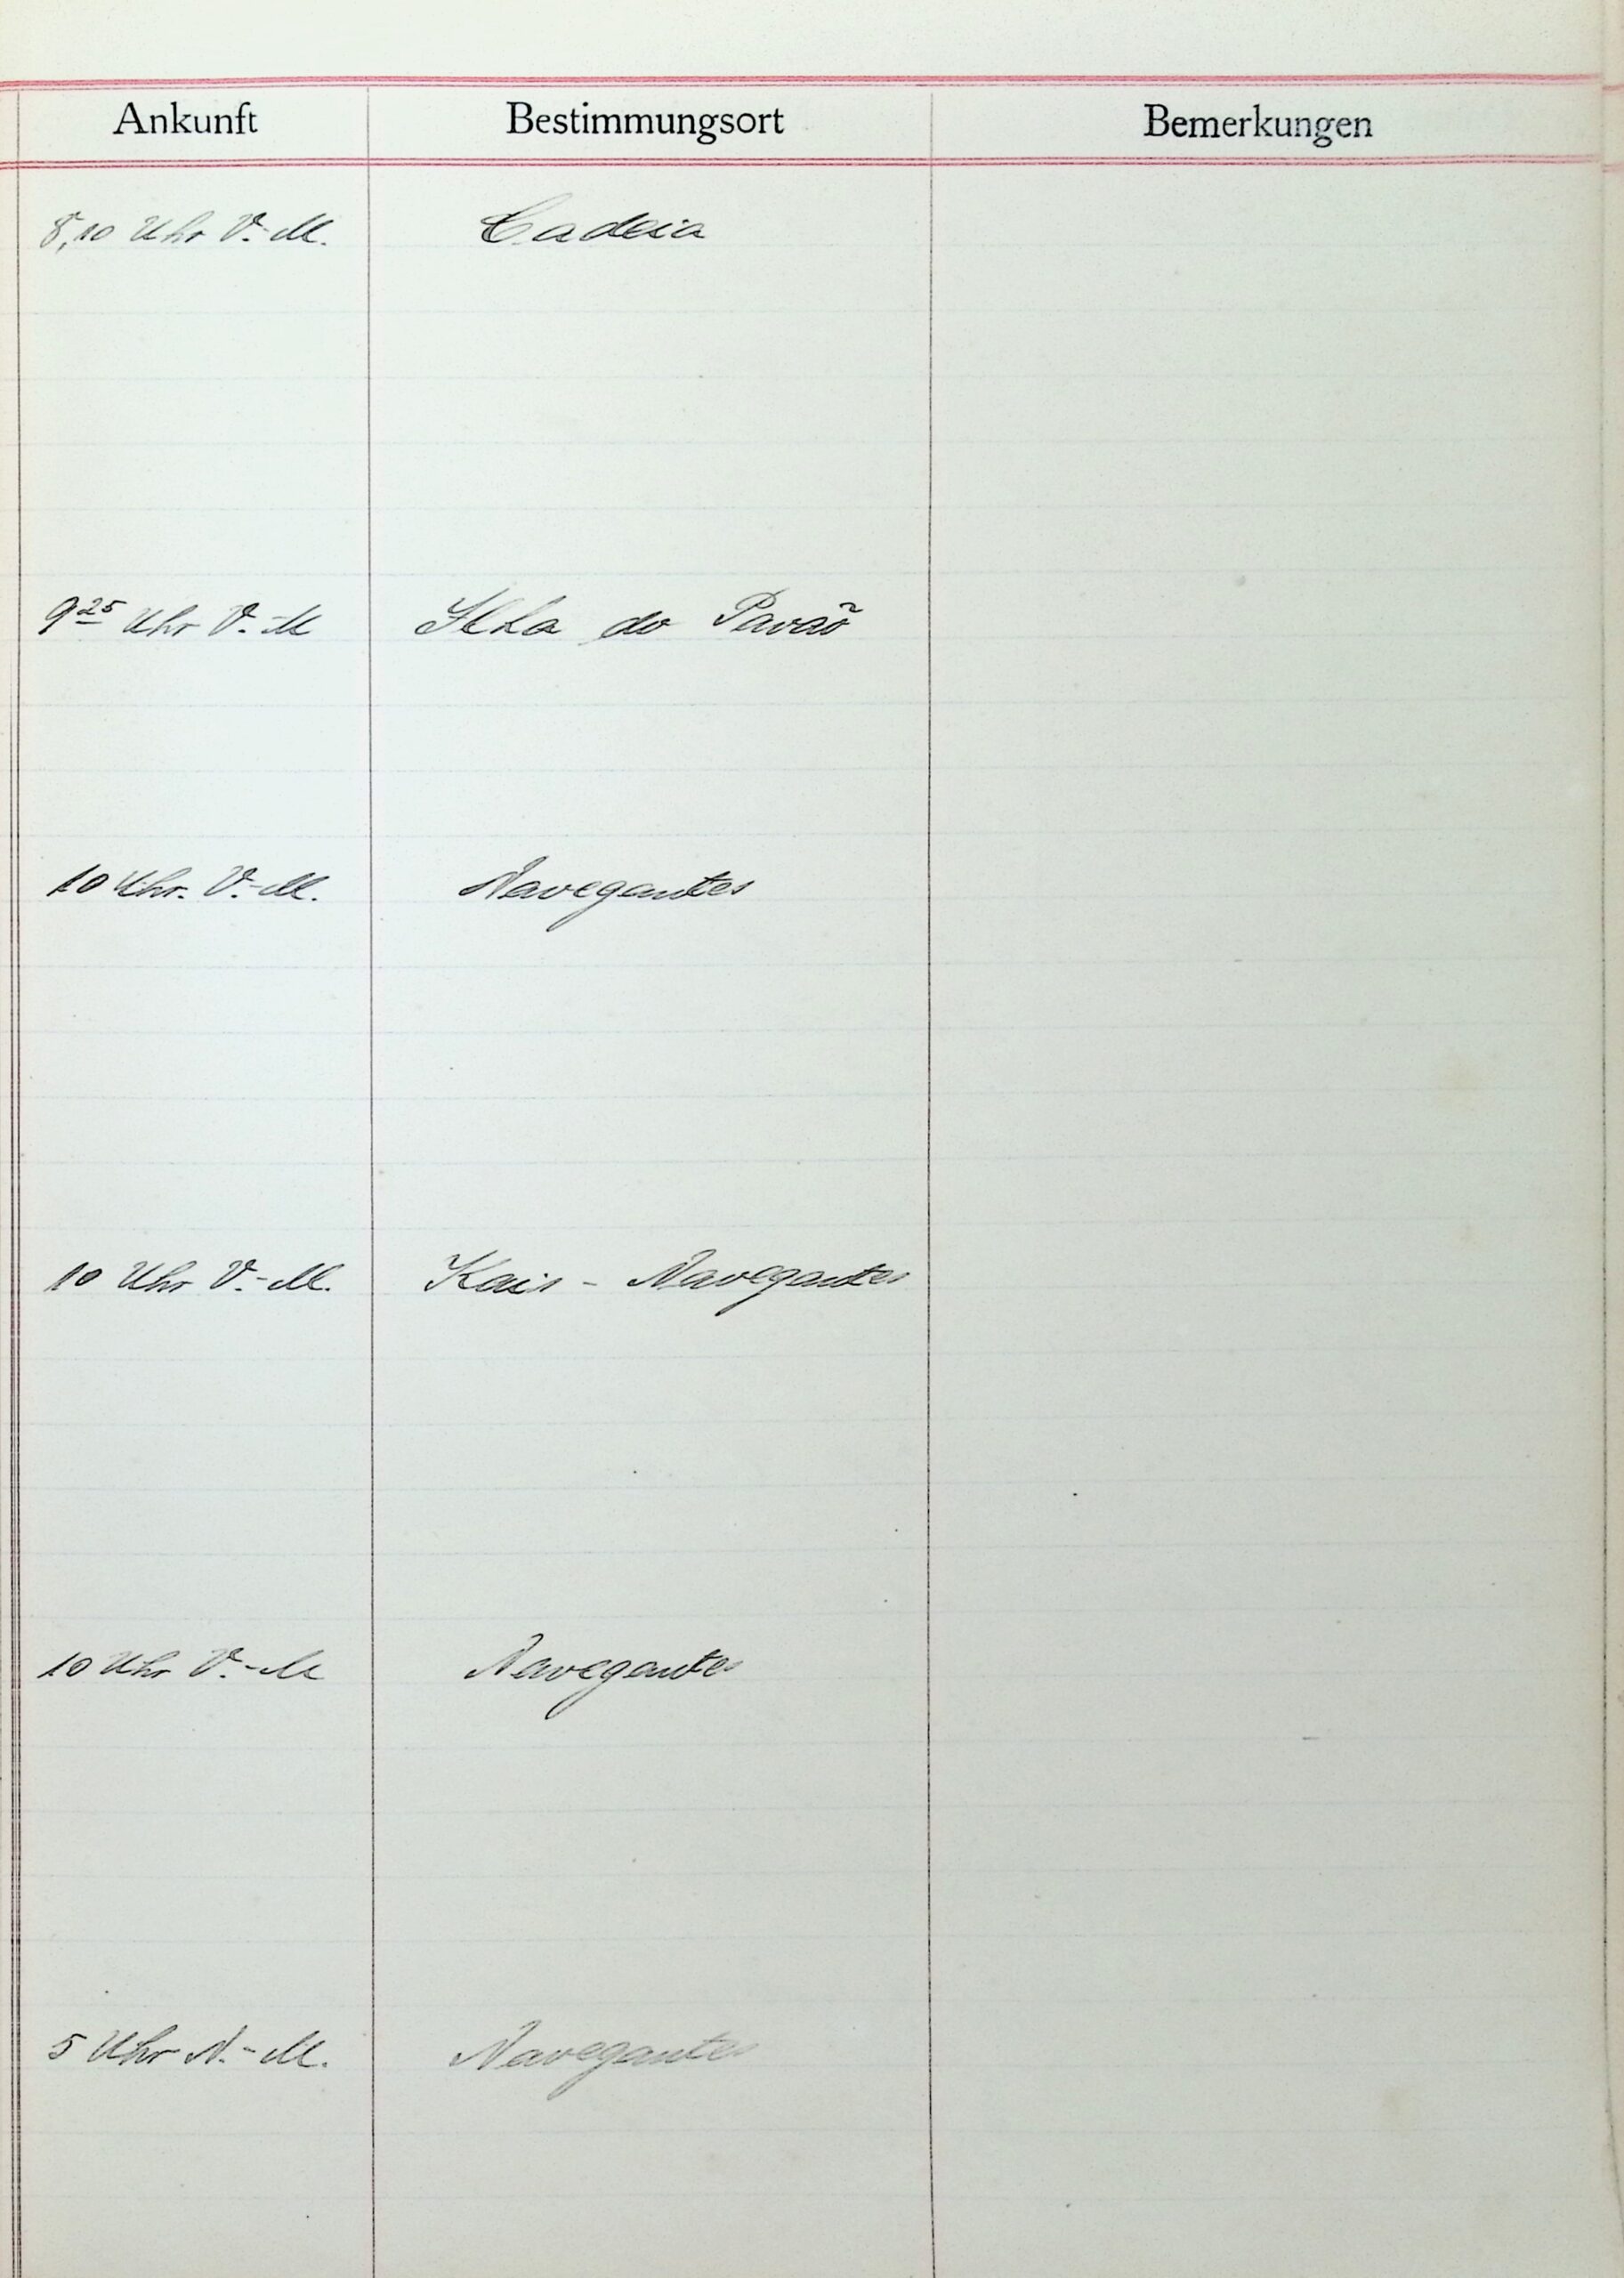 Ankunft Bestimmungsort Bemerkungen
8,10 Uhr V.-M. Cadeia
9 25 Uhr V.-M Ilha do Pavaõ
10 Uhr. V.-M. Navegantes
10 Uhr V.-M. Kais - Navegantes
10 Uhr V.-M Navegantes
5 Uhr N.-M. Navegantes